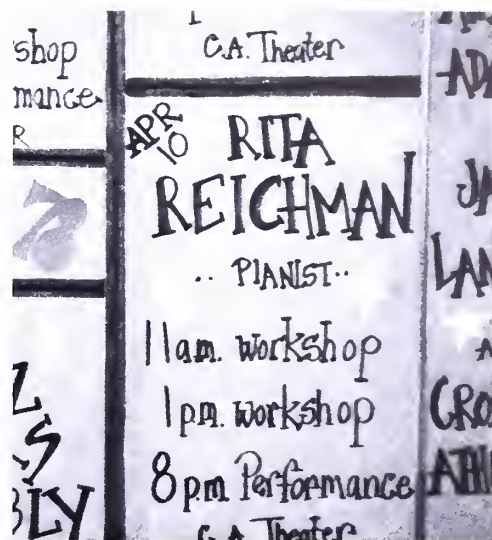 shop
mance
R
C.A. Theater
APR
10
RITA
REICHMAN
.. PIANIST..
11am. workshop
1pm. workshop
8pm Performance
C.A. Theater
BLY